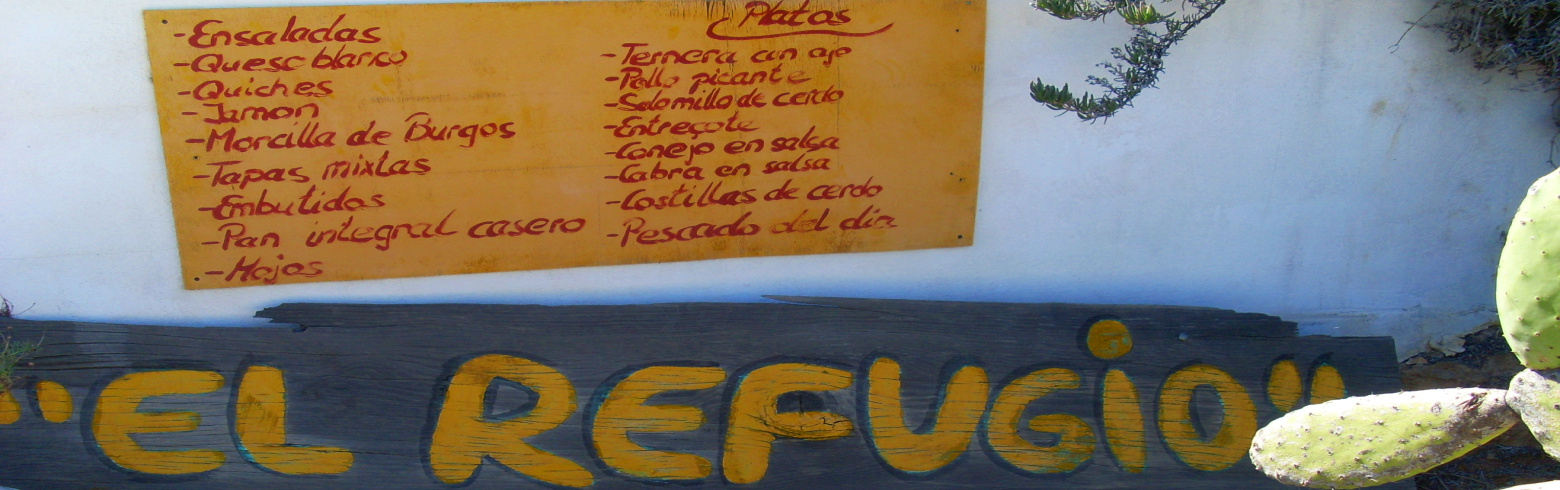 -Ensaladas
-Queso blanco
-Quiches
-Jamon
-Morcilla de Burgos
-Tapas mixtas
-Embutidos
-Pan integral casero
-Mojos
Platos
-Ternera con ajo
-Pollo picante
-Solomillo de cerdo
-Entreçote
-Conejo en salsa
-Cabra en salsa
-Costillas de cerdo
-Pescado del dia
"EL REFUGiO"